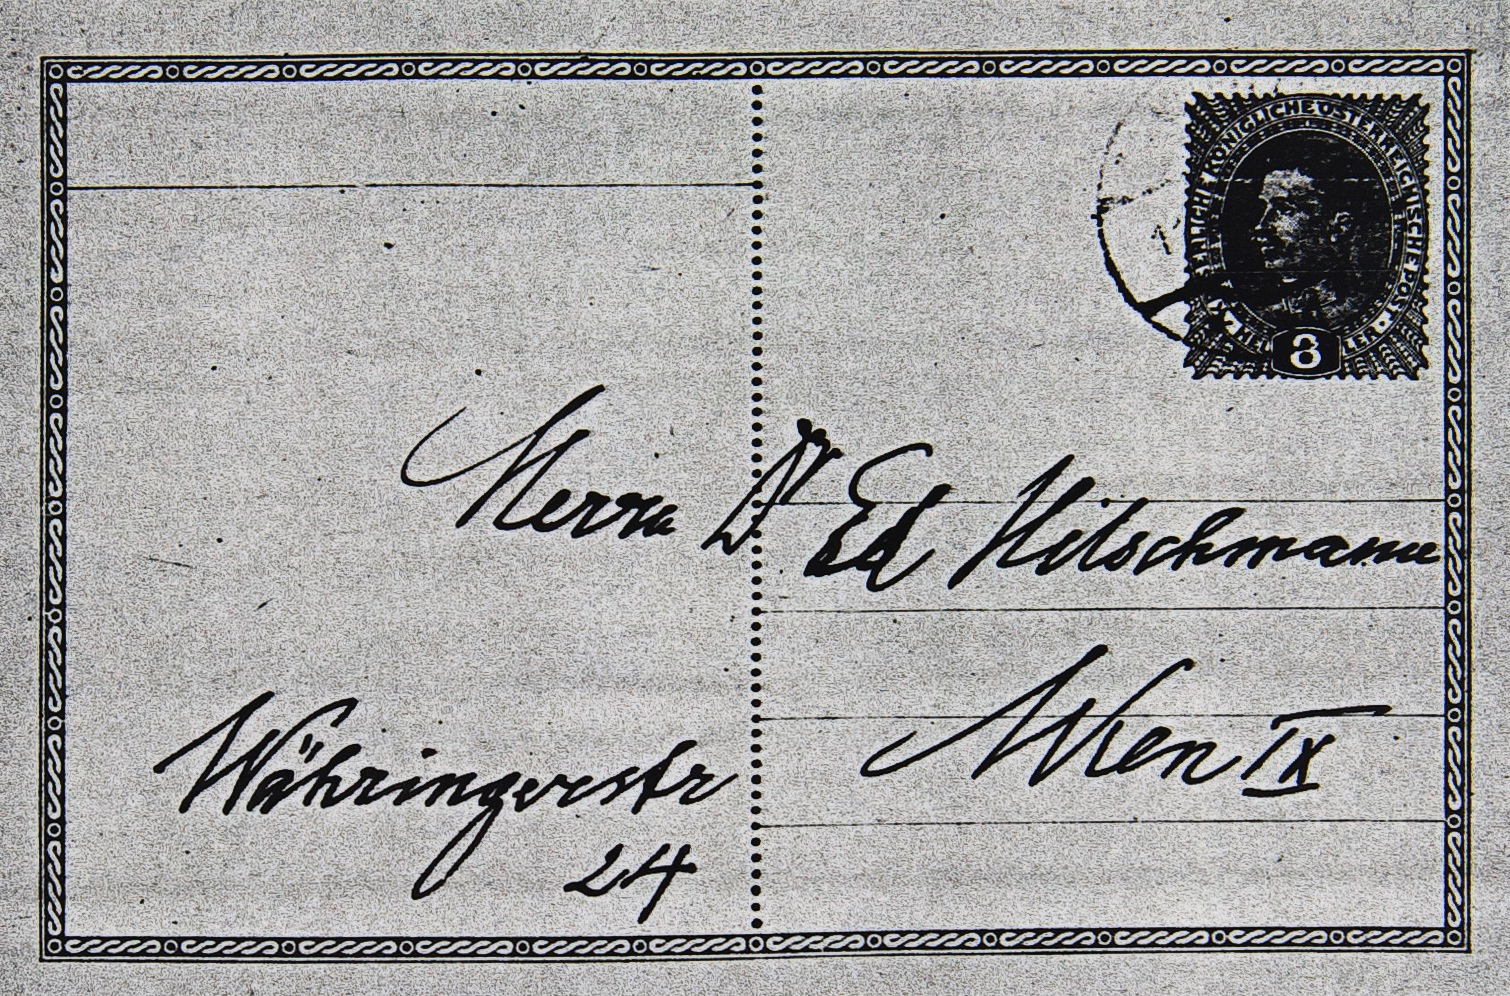 KAISERLICHE KÖNIGLICHE ÖSTERREICHISCHE POST
8
Herrn Dr Ed Hitschmann
Wien IX
Währingerstr
24